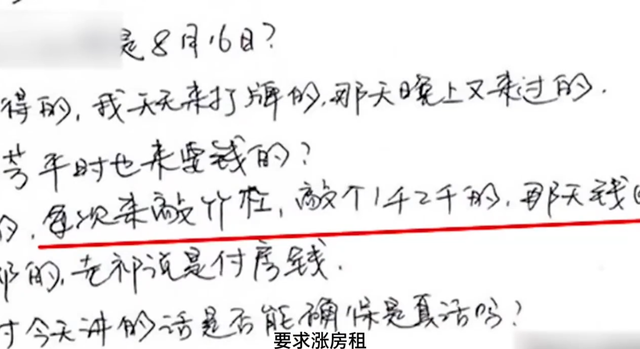 是8月16日?
得的,我天天来打牌的,那天晚上又来过的.
芳平时也来要钱的?
的,每次来敲竹杠,敲个1千2千的,那天钱
祁的,老祁说是付房钱.
讨今天讲的话是否能确保是真话吗?
要求涨房租